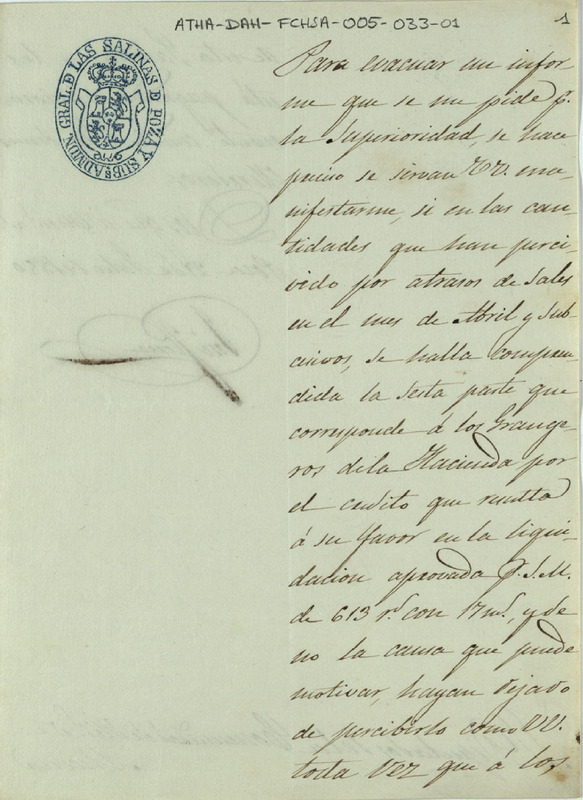 ATHA-DAH-FCHSA-005-033-01
1
ADMON. GRAL. D LAS SALINAS D POZA Y SUBS.
Para evacuar un infor-
me que se me pide p.
la Superioridad, se hace
preciso se sirvan VV. ma-
nifestarme, si en las can-
tidades que han perci-
vido por atrasos de Sales
en el mes de Abril y sub-
cisivos, se halla compren
dida la sesta parte que
corresponde á los Grange-
ros de la Hacienda por
el credito que resulta
á su favor en la liqui-
dacion aprovada p. S.M.
de 613 r.s con 17 m.s, y de
no la causa que puede
motivar, hayan dejado
de percibirlo como VV.
toda vez que á los